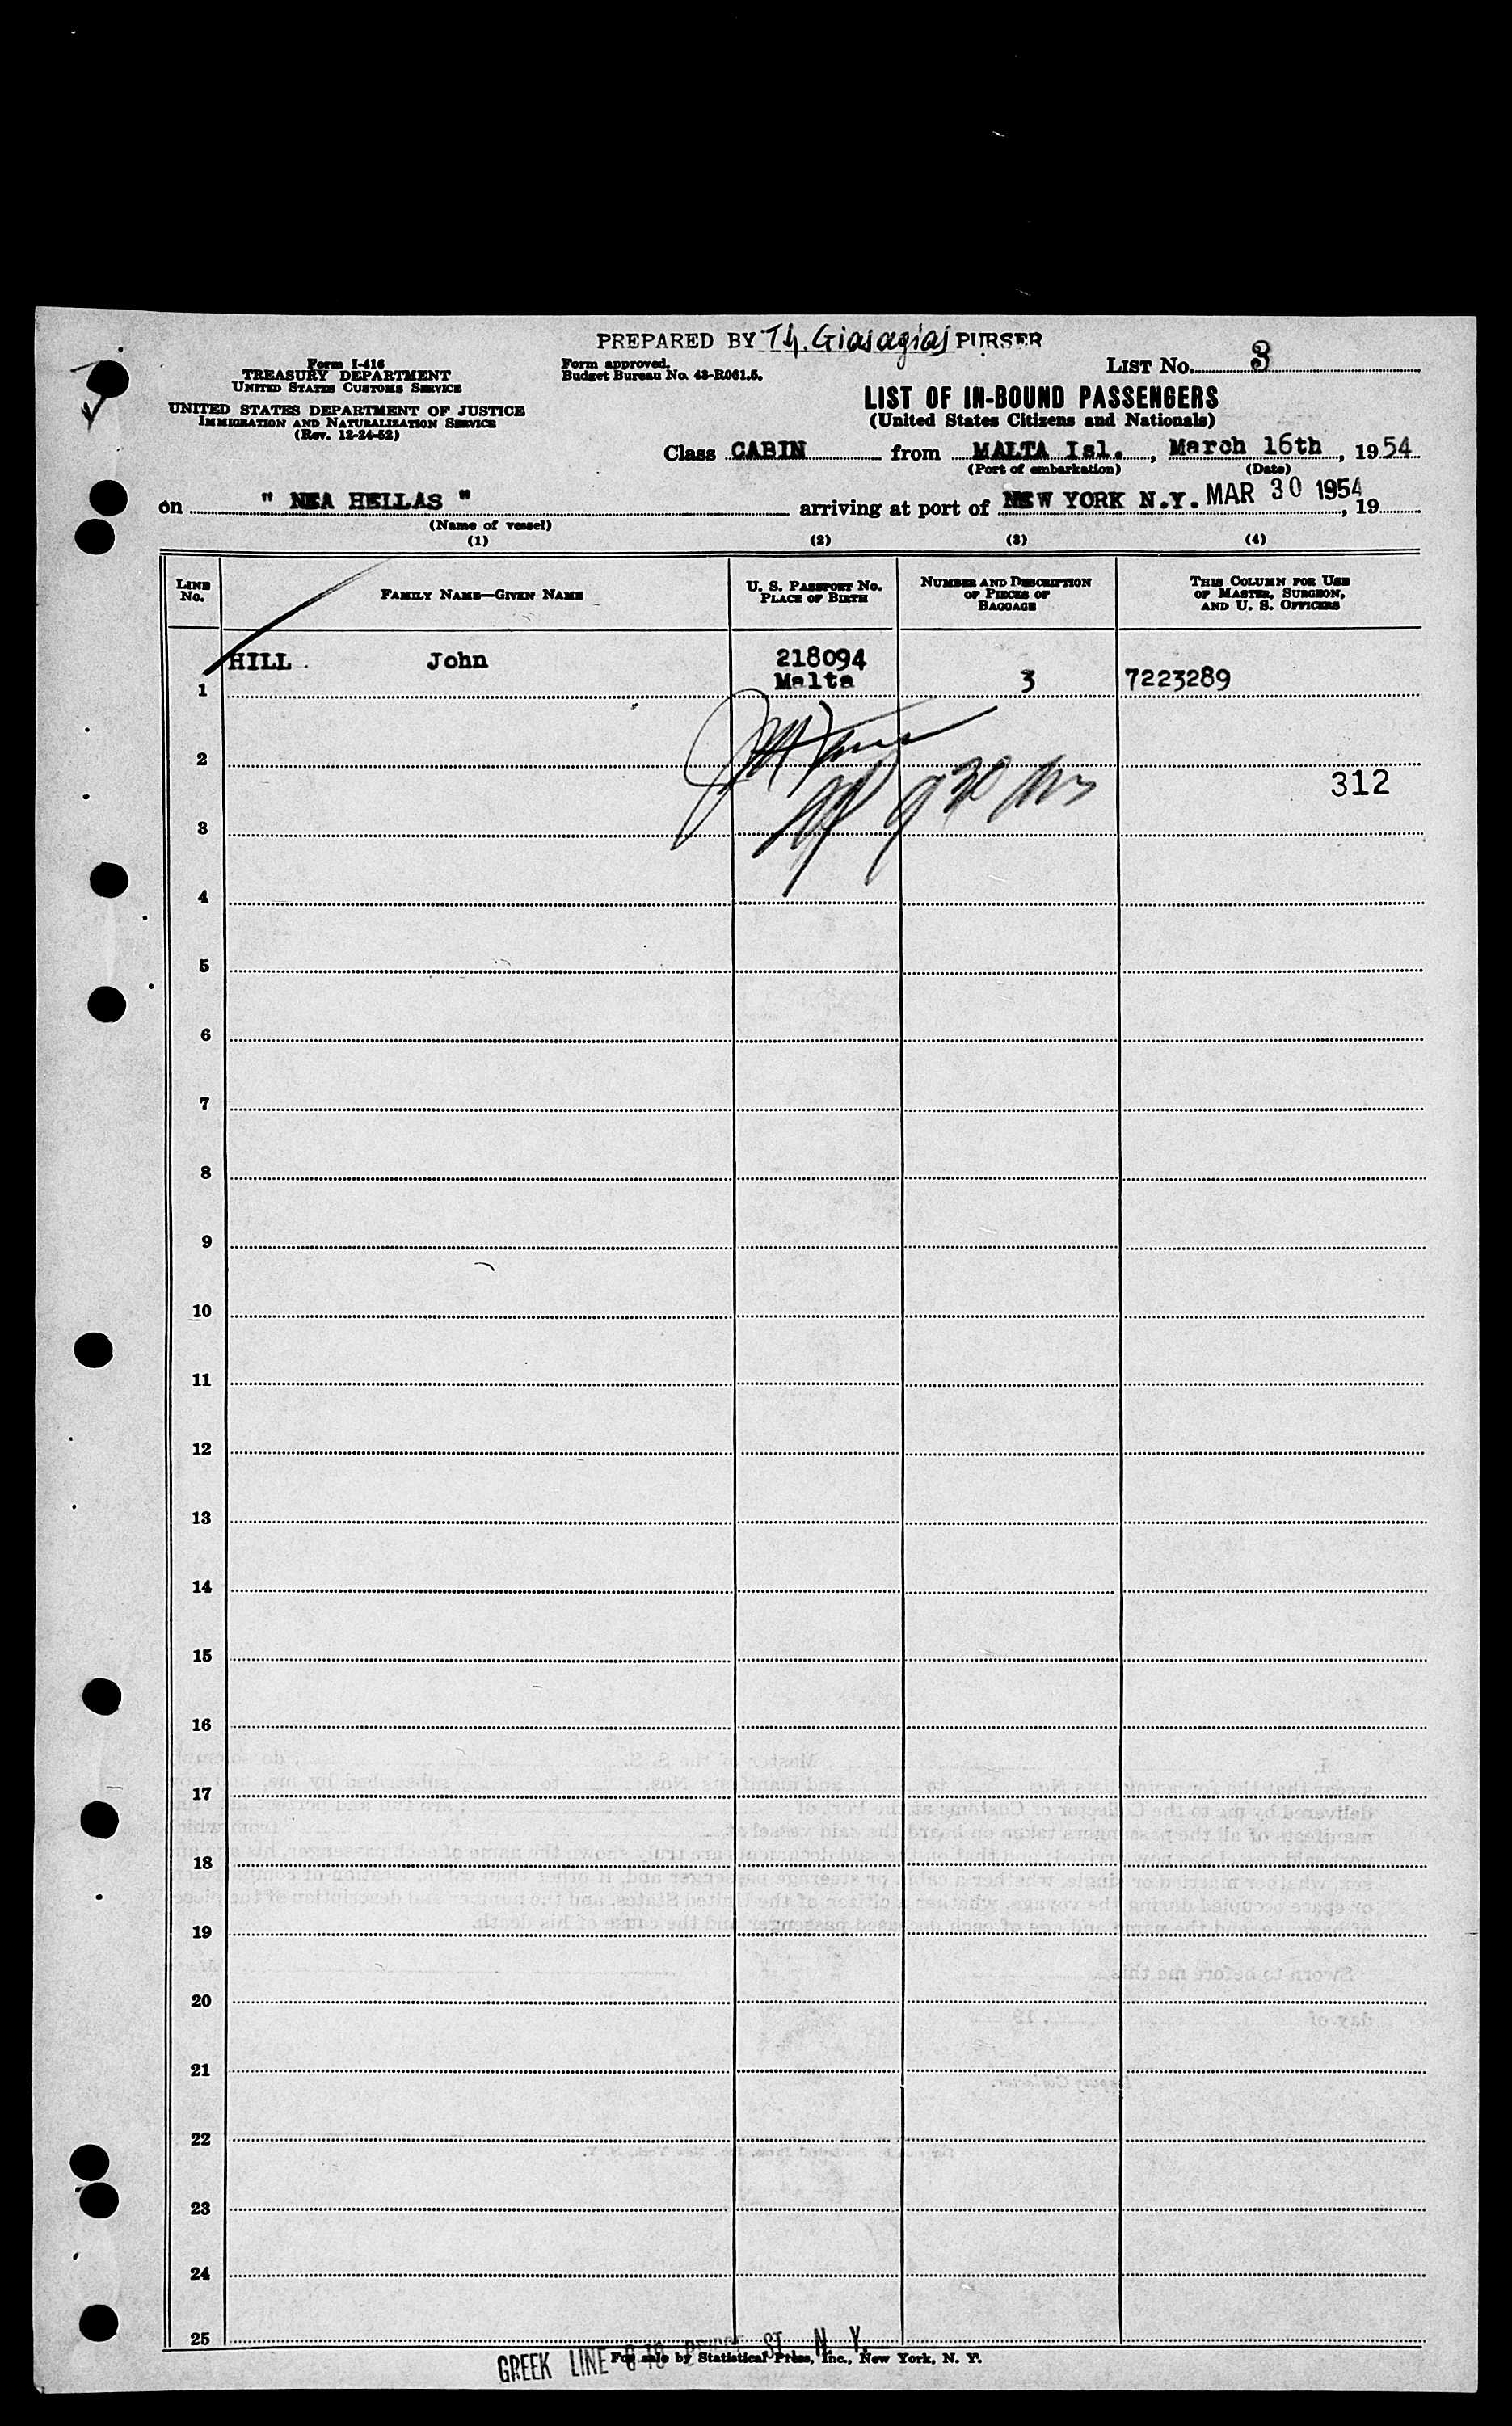 PREPARED BY Th. Giasagias PURSER
Form I-416
TREASURY DEPARTMENT
UNITED STATES CUSTOMS SERVICE
UNITED STATES DEPARTMENT OF JUSTICE
IMMIGRATION AND NATURALIZATION SERVICE
(Rev. 12-24-52)
Form approved.
Budget Bureau No. 43-R061.5.
LIST No. 3
LIST OF IN-BOUND PASSENGERS
(United States Citizens and Nationals)
Class CABIN from MALTA Isl., March 16th, 1954
(Port of embarkation) (Date)
on " NEA HELLAS " arriving at port of NEW YORK N.Y. MAR 30 1954, 19
(Name of vessel)
(1) (2) (3) (4)
LINE No. FAMILY NAME—GIVEN NAME U. S. PASSPORT No. PLACE OF BIRTH NUMBER AND DESCRIPTION OF PIECES OF BAGGAGE THIS COLUMN FOR USE OF MASTER, SURGEON, AND U. S. OFFICERS
HILL John 218094
1 Malta 3 7223289
2
312
3
4
5
6
7
8
9
10
11
12
13
14
15
16
17
18
19
20
21
22
23
24
25
GREEK LINE 8-10 BRIDGE ST. N. Y.
For sale by Statistical Press, Inc., New York, N. Y.